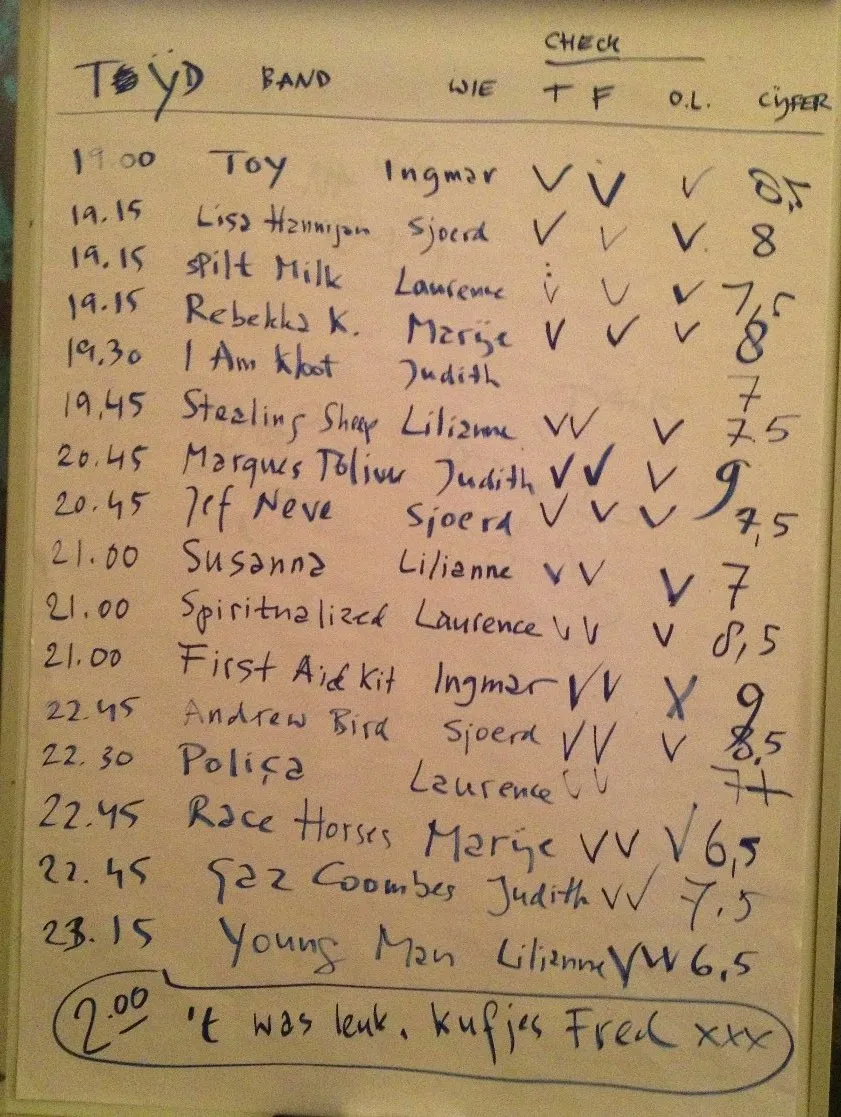 CHECK
TŸD BAND WIE T F O.L. CIJFER
19.00 Toy Ingmar V V V 8,5
19.15 Lisa Hannigan Sjoerd V V V 8
19.15 Spilt Milk Laurence V V V 7,5
19.15 Rebekka K. Marije V V V 8
19.30 I Am Kloot Judith 7
19.45 Stealing Sheep Lilianne V V V 7.5
20.45 Marques Toliver Judith V V V 9
20.45 Jef Neve Sjoerd V V V 7,5
21.00 Susanna Lilianne V V V 7
21.00 Spiritualized Laurence V V V 8,5
21.00 First Aid Kit Ingmar V V X 9
22.45 Andrew Bird Sjoerd V V V 8.5
22.30 Poliça Laurence V V 7+
22.45 Race Horses Marije V V V 6,5
22.45 Gaz Coombes Judith V V 7,5
23.15 Young Man Lilianne V V V 6,5
2.00 't was leuk. Kusjes Fred xxx